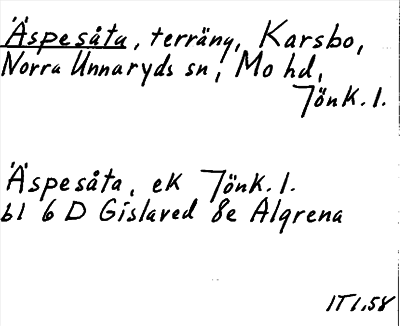 Äspesåta, terräng, Karsbo,
Norra Unnaryds sn, Mo hd,
Jönk. l.
Äspesåta, ek Jönk. l.
bl 6 D Gislaved 8e Algrena
IT 1.58